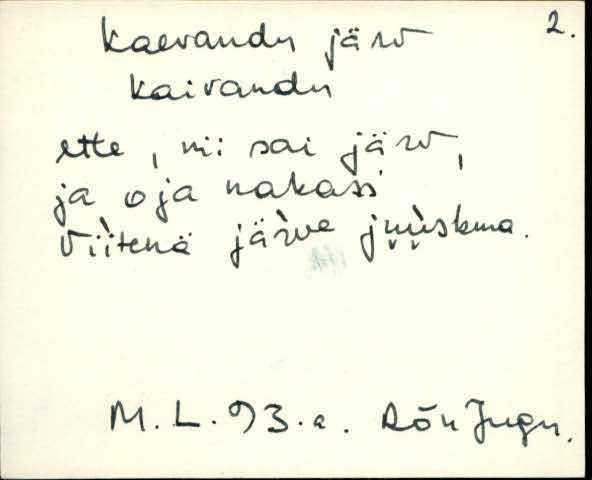 2.
Kaevandu järv
Kaivandu
ette, nii sai järv,
ja oja nakass
Viitenä järve juuskma.
M. L. 93.a. Rõu Jugu.